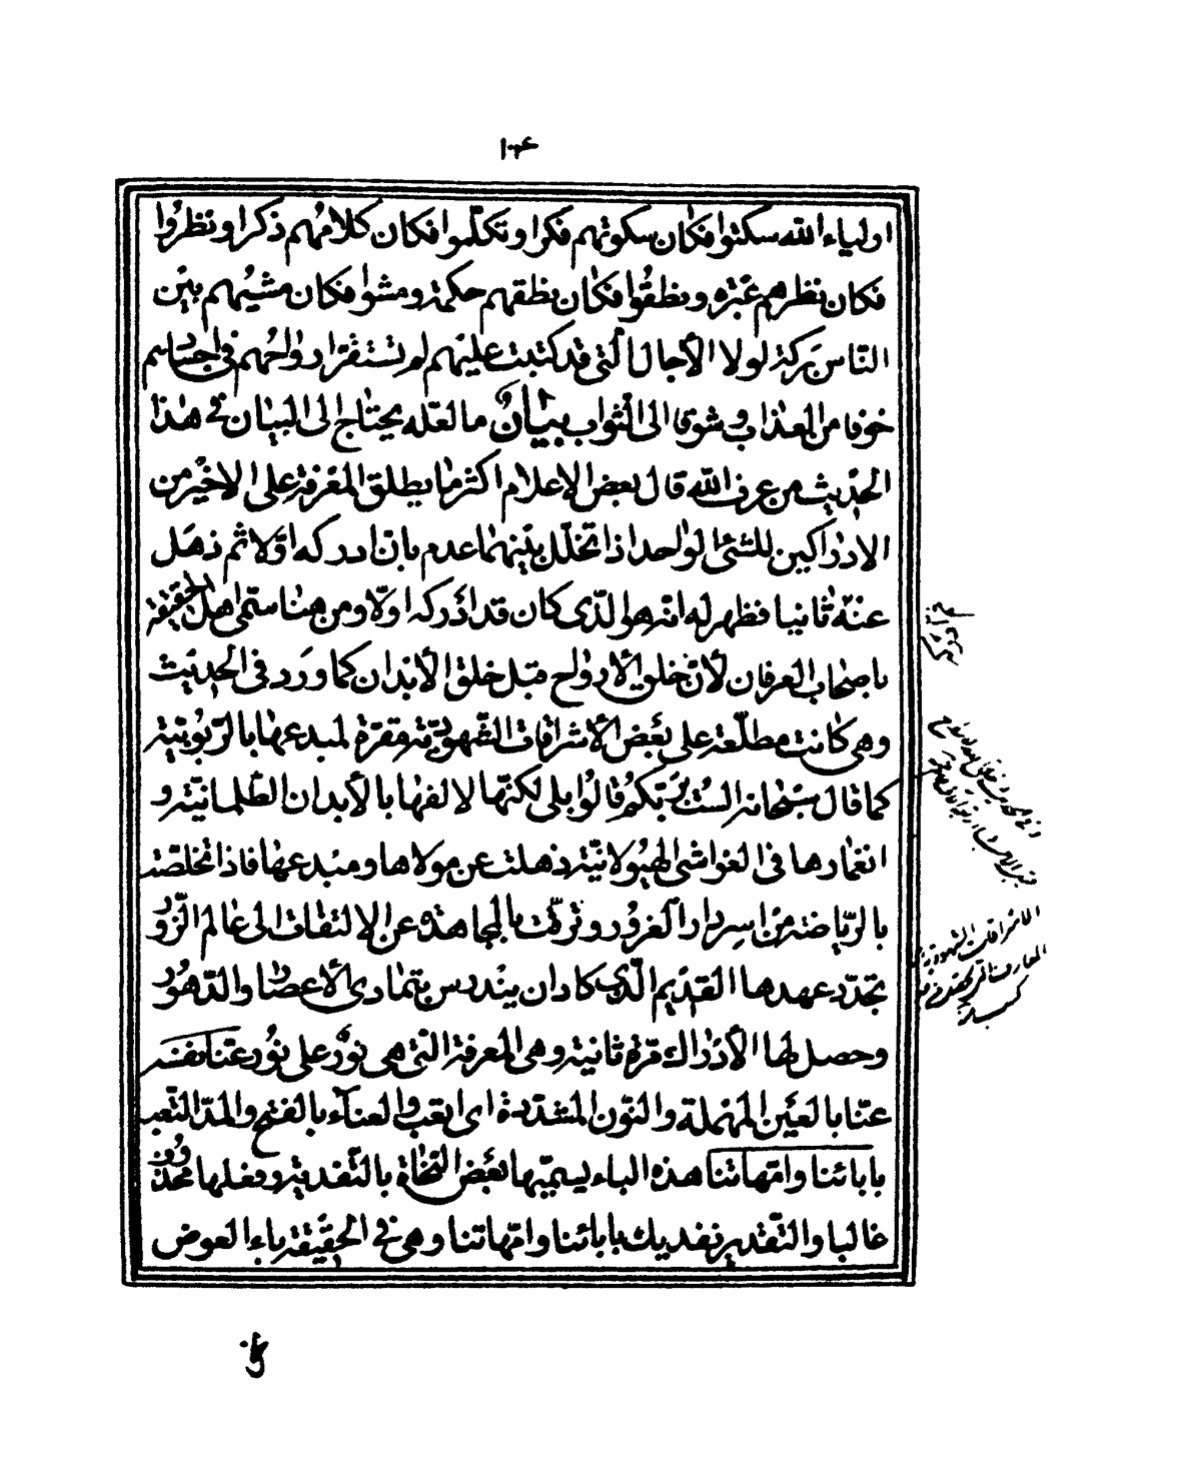 ۱۰۴
اولياء الله سكتوا فكان سكوتهم فكرا وتكلّموا فكان كلامُهم ذكرا ونظرُوا
فكان نظرهم عَبْرة ونطقُوا فكان نطقهم حكمة ومشوا فكان مشيُهم بَيْن
النّاس بَركة لولا الآجال الّتى قد كتبت عليْهم لم تستقرّ ارواحُهم فى اجسادهم
خوفا من العذاب وشوقا الى الثواب بيان ما لعّله يحتاج الى البيان فى هذا
الحَديث من عرف الله قال بعض الاعلام اكثر ما يطلق المعْرفة على الاخير من
الادراكين للشئ الواحد اذا تخلّل بيْنهما عدم بان ادركه اوّلا ثم ذهَل
عنْه ثانيا فظهر له انّه هو الّذى كان قد ادْركه اوّلا ومن هنا سمّى اهل الحقيقة
باصْحاب العرفان لأنّ خلق الأرواح قبل خلق الأبْدان كما ورَد فى الحديث
وهى كانت مطلّعة على بعْض الأشراقات الشّهوديّة مقرّة لمبدعها بالرّبُوبيّة
كما قال سبْحانه الستُ بربّكم قالُوا بلى لكنّها لالفها بالأبدان الظّلمانيّة و
انغمارها فى الغواشى الهيُولانيّة ذهلت عن مولاها ومبْدعها فاذا تخلّصت
بالرّياضة من اسر دار الغرُور وترقّت بالمجاهدة عن الالتفات الى عالم الزّور
تجدّد عهدها القديم الّذى كاد ان ينْدرس بتمادى الأعصار والدّهُور
وحصل لها الأدْراك مرّة ثانية وهى المعرفة الّتى هى نورٌ على نُور عنّا نفسَه
عنّا بالعَيْن المهْملة والنّون المشدّدة اى اتعب والعناء بالفتح والمدّ التّعب
بابائنا وامّهاتنا هذه الباء يسمّيها بعْض النّحاة بالتّفدية وفعلها محْذوف
غالبا والتّقدير نفديك بابائنا وامّهاتنا وهى فى الحقيقة باء العوض